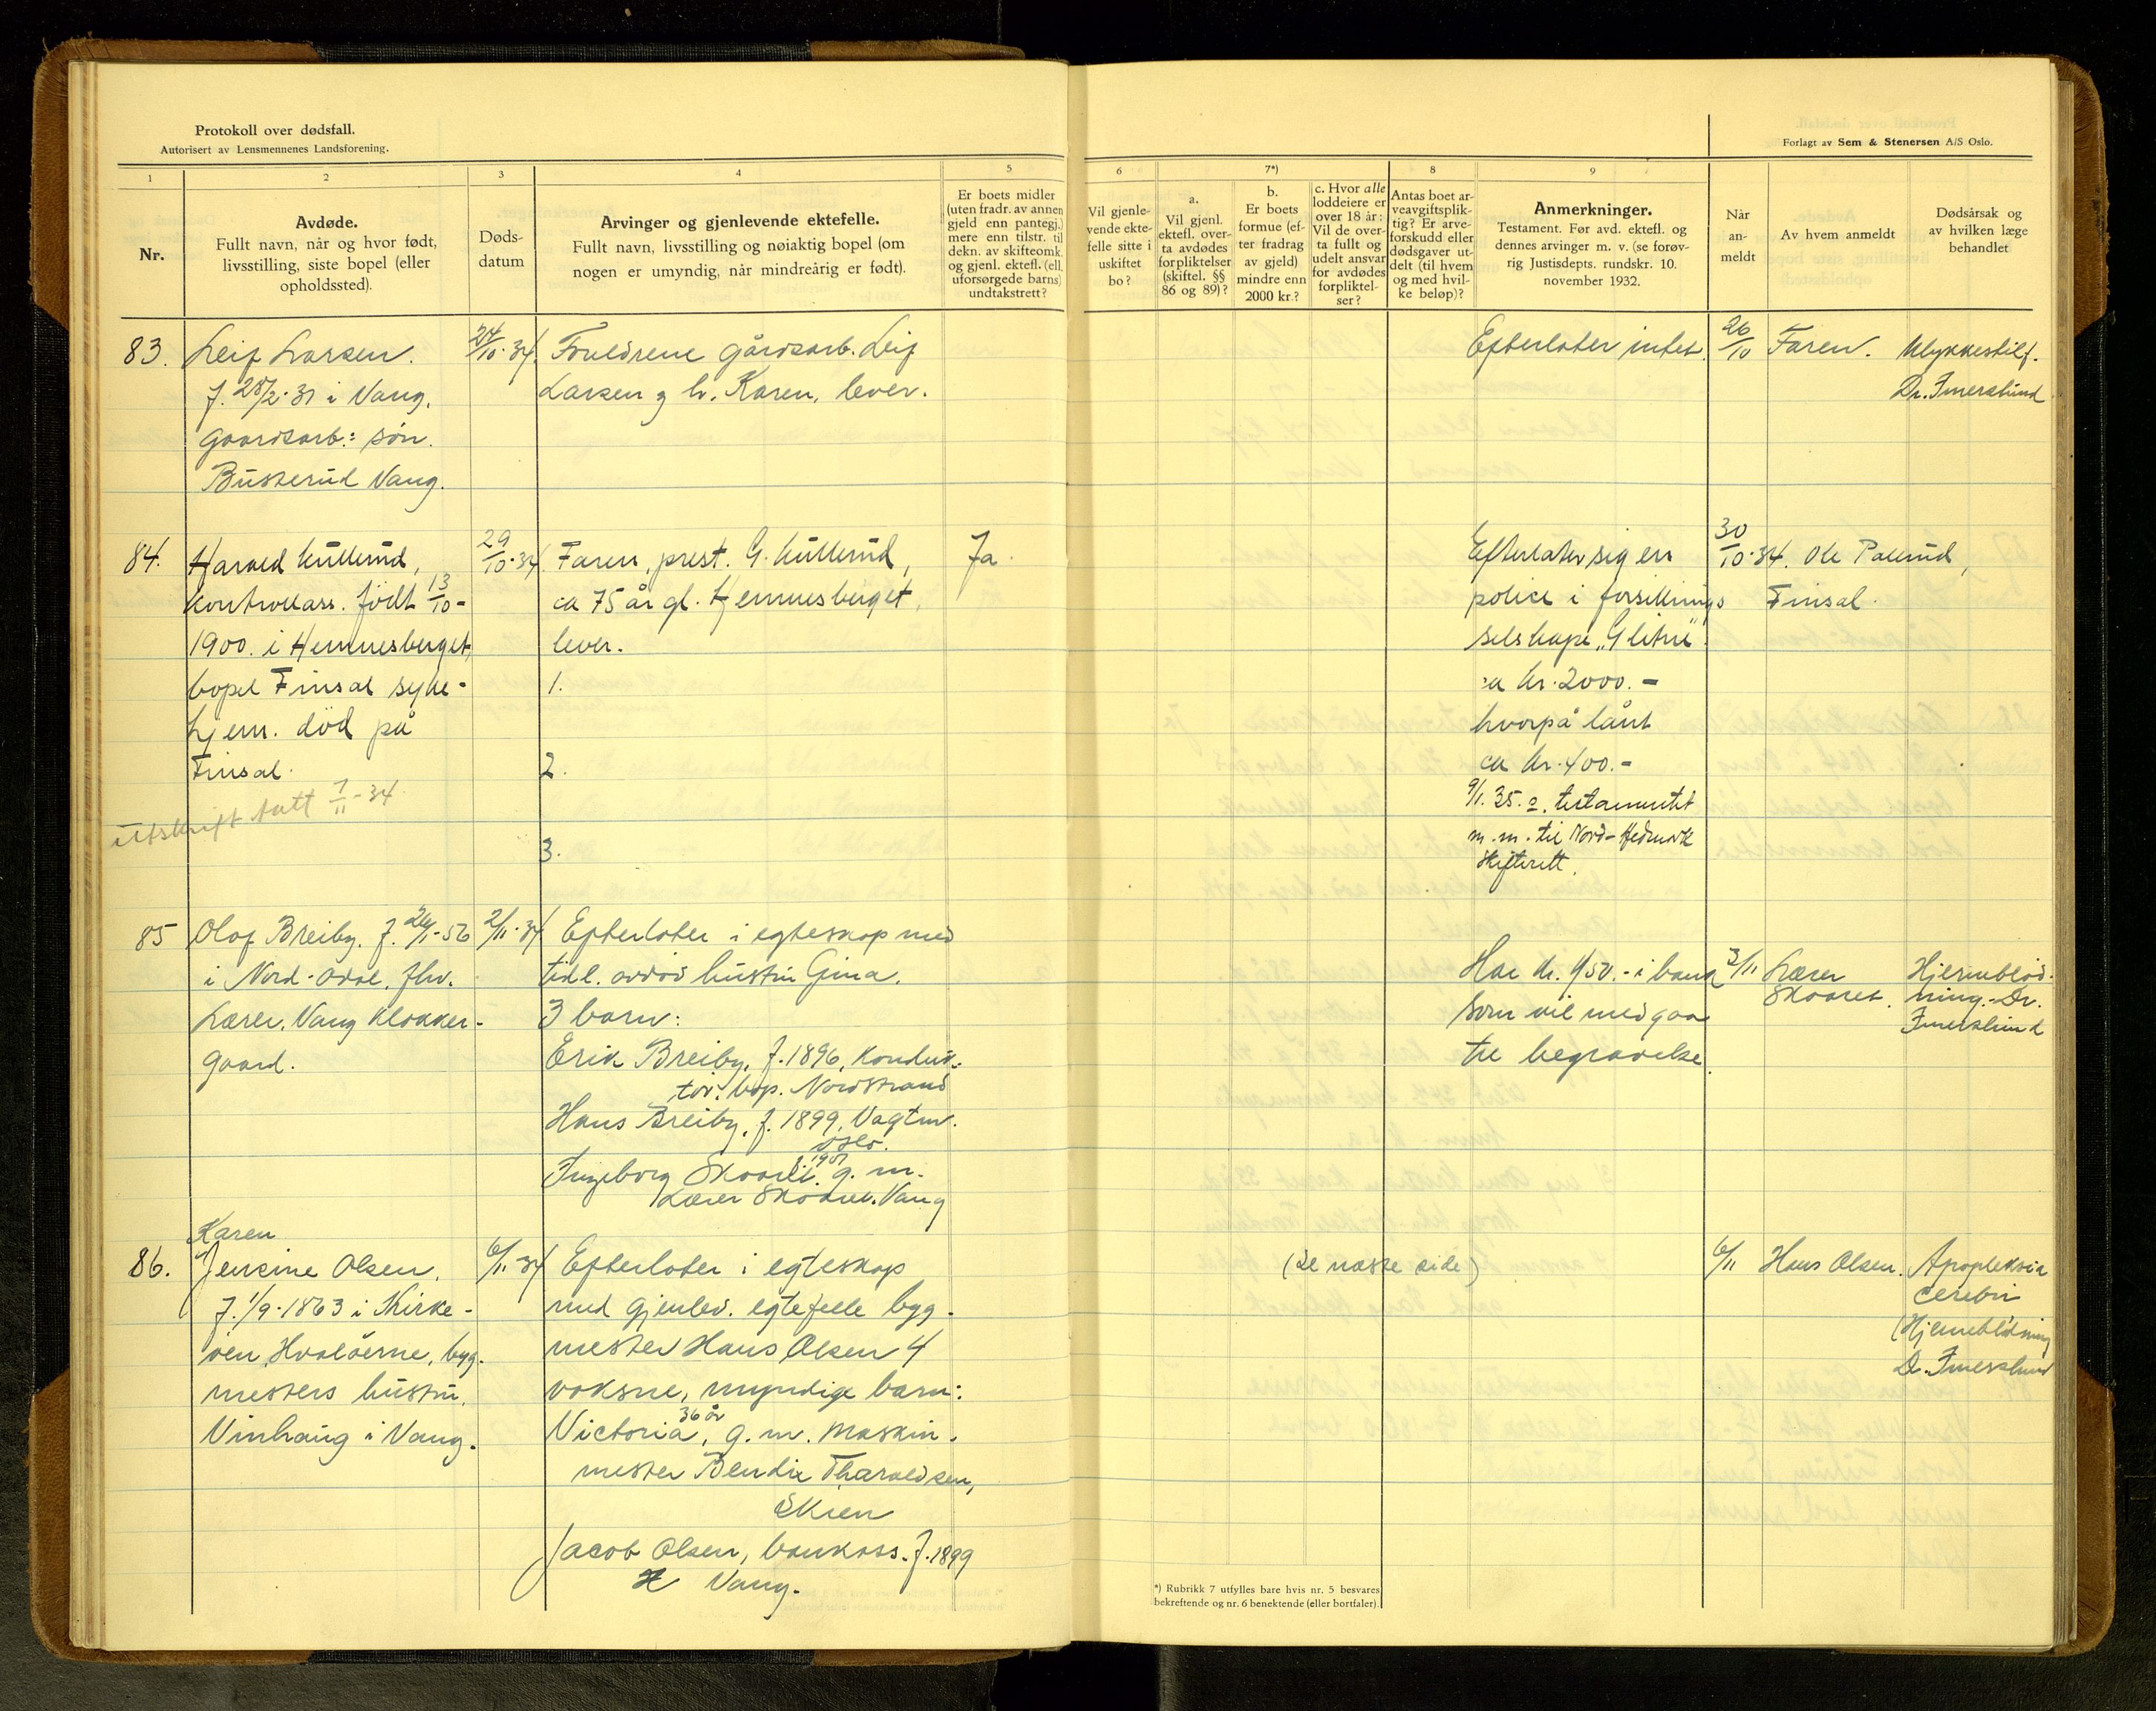 Protokoll over dødsfall.
Autorisert av Lensmennenes Landsforening.
Forlagt av Sem & Stenersen A/S Oslo.
1
2
3
4
5
6
7*)
8
9
Nr.
Avdøde.
Fullt navn, når og hvor født,
livsstilling, siste bopel (eller
opholdssted).
Døds-
datum
Arvinger og gjenlevende ektefelle.
Fullt navn, livsstilling og nøiaktig bopel (om
nogen er umyndig, når mindreårig er født).
Er boets midler
(uten fradr. av annen
gjeld enn pantegj.)
mere enn tilstr. til
dekn. av skifteomk.
og gjenl. ektefl. (ell.
uforsørgede barns)
undtakstrett?
Vil gjenle-
vende ekte-
felle sitte i
uskiftet
bo?
a.
Vil gjenl.
ektefl. over-
ta avdødes
forpliktelser
(skiftel. §§
86 og 89)?
b.
Er boets
formue (ef-
ter fradrag
av gjeld)
mindre enn
2000 kr.?
c. Hvor alle
loddeiere er
over 18 år:
Vil de over-
ta fullt og
udelt ansvar
for avdødes
forpliktel-
ser?
Antas boet ar-
veavgiftsplik-
tig? Er arve-
forskudd eller
dødsgaver ut-
delt (til hvem
og med hvil-
ke beløp)?
Anmerkninger.
Testament. Før avd. ektefl. og
dennes arvinger m. v. (se forøv-
rig Justisdepts. rundskr. 10.
november 1932.
Når
an-
meldt
Av hvem anmeldt
Dødsårsak og
av hvilken læge
behandlet
83.
Leif Larsen.
f. 28/2-31 i Vang.
gaardsarb.: søn.
Buskerud Vang.
24/10-34.
Foreldrene gårdsarb. Leif
Larsen g h. Karen, lever.
Efterlater intet.
26/10
Faren.
Ulykkestilf.
Dr. Imerslund
84.
Harald Kullerud,
kontrollass. født 13/10-
1900. i Hemnesberget,
bopel Finsal syke-
hjem. død på
Finsal.
utskrift tatt 7/11-34
29/10-34.
Faren, prest. G. Kullerud,
ca 75 år gl. Hemnesberget,
lever.
1.
2.
3.
Ja.
Efterlater sig en
police i forsikrings
selskape „Glitne"
ca kr. 2000.-
hvorpå lånt
ca kr. 400.-
9/1. 35. s. testamentet
m. m. til Nord-Hedmark
skifterett.
30/10-34.
Ole Pallerud,
Finsal.
85
Olaf Breiby, f. 26/1-56
i Nord-Odal, fhv.
Lærer, Vang Klokker-
gaard.
2/11-34
Efterlater i egteskap med
tidl. avdød hustru Gina.
3 barn:
Erik Breiby, f. 1896, konduk-
tør, bop. Nordstrand
Hans Breiby, f. 1899, Vagtm.
Oslo.
Ingeborg Skaaret, f. 1901 g. m.
Lærer Skaaret. Vang
Har kr. 450.- i bank
som vil medgaa
til begravelse.
3/11
Lærer
Skaaret.
Hjerneblød-
ning.- Dr.
Imerslund
86.
Karen
Jensine Olsen,
f. 1/9-1863 i Kirke-
øen, Hvaløerne, byg.
mesters hustru,
Vinhaug i Vang.
6/11-34
Efterlater i egteskap
med gjenlev. egtefelle byg-
mester Hans Olsen 4
voksne, myndige barn:
Victoria, 36 år g. m. maskin-
mester Bendix Tharaldsen,
Skien
Jacob Olsen, bankass. f. 1899
Vang.
(se næste side)
6/11
Hans Olsen.
Apopleksia
cerebri
(Hjerneblødning
Dr. Imerslund
*) Rubrikk 7 utfylles bare hvis nr. 5 besvares
bekreftende og nr. 6 benektende (eller bortfaler).